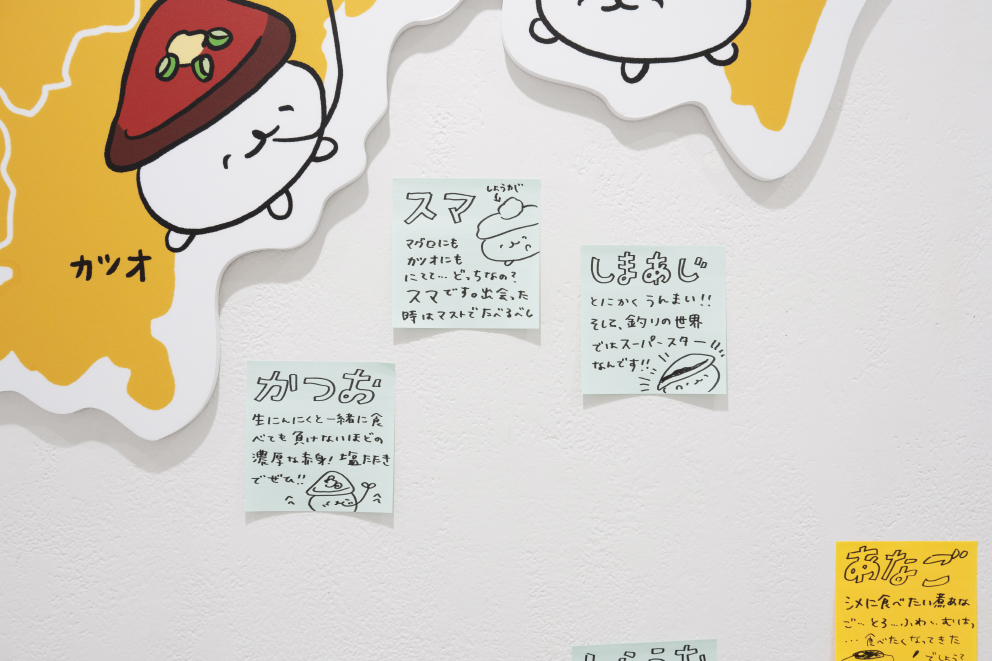 カツオ
スマ
しょうが
マグロにも
カツオにも
にてて…どっちなの?
スマです。出会った
時はマストでたべるべし
しまあじ
とにかくうんまい!!
そして、釣りの世界
ではスーパースター
なんです!!
かつお
生にんにくと一緒に食
べても負けないほどの
濃厚な赤身!塩たたき
でぜひ!!
あなご
シメに食べたい煮あな
ご…とろ…ふわ…むは、
…食べたくなってきた
でしょう?